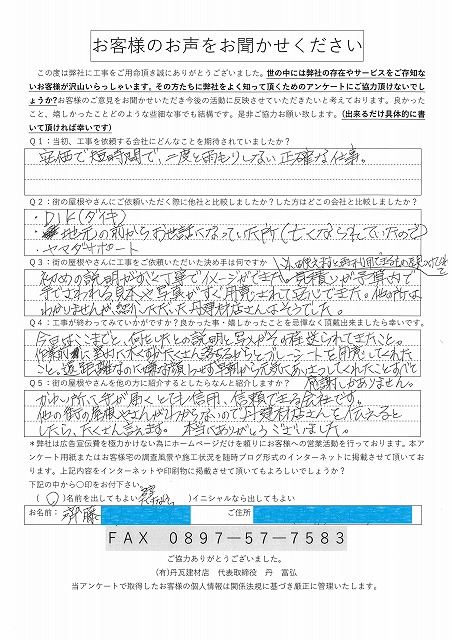 お客様のお声をお聞かせください
この度は弊社に工事をご用命頂き誠にありがとうございました。世の中には弊社の存在やサービスをご存知な
いお客様が沢山いらっしゃいます。その方たちに弊社をよく知って頂くためのアンケートにご協力頂けないでし
ょうか?お客様のご意見をお聞かせいただき今後の活動に反映させていただきたいと考えております。良かった
こと、嬉しかったことどのような些細な事でも結構です。是非ご協力お願い致します。(出来るだけ具体的に書
いて頂ければ幸いです)
Q1:当初、工事を依頼する会社にどんなことを期待されていましたか?
安価で短時間で、二度と雨もりしない正確な仕事。
Q2:街の屋根やさんにご依頼いただく際に他社と比較しましたか?した方はどこの会社と比較しましたか?
・DIK(ダイキ)
・地元の前からお世話になっていた所(亡くなられていたので)
・ヤマダサポート
Q3:街の屋根やさんに工事をご依頼いただいた決め手は何ですか
初めの説明がすごく丁寧でイメージができた。見積りが予算内で
手でさわれる見本や写真がすぐ用意されて安心できた。他の所は
わかりませんが紹介いただいた丹建材店さんはそうでした。
Q4:工事が終わってみていかがですか?良かった事・嬉しかったことを忌憚なく頂戴出来ましたら幸いです。
今日はここまでと、何をしたとの説明と写真がその都度送られてきたこと。
作業前に落ち木くずがたくさん落ちるからとブルーシートを用意してくれた
こと。遠距離なのに嫌な顔もせず早朝から元気であいさつしてくれたことすべて
感謝しかありません。
Q5:街の屋根やさんを他の方に紹介するとしたらなんと紹介しますか?
かゆい所に手が届くとにかく信用、信頼できる会社です。
他の街の屋根やさんがわからないので丹建材店さんと伝えると
したら、たくさん言えます。本当にありがとうございました。
*弊社は広告宣伝費を極力かけない為にホームページだけを頼りにお客様への営業活動を行っております。本ア
ンケート用紙またはお客様宅の調査風景や施工状況を随時ブログ形式のインターネットに掲載させて頂いてお
ります。上記内容をインターネットや印刷物に掲載させて頂いてもよろしいでしょうか?
下記の中から〇印をお付下さい。
(〇)名前を出してもよい ( )イニシャルなら出してもよい
お名前: 齊藤 ご住所
FAX 0897-57-7583
ご協力ありがとうございました。
(有)丹瓦建材店 代表取締役 丹 富弘
当アンケートで取得したお客様の個人情報は関係法規に基づき厳正に管理いたします。